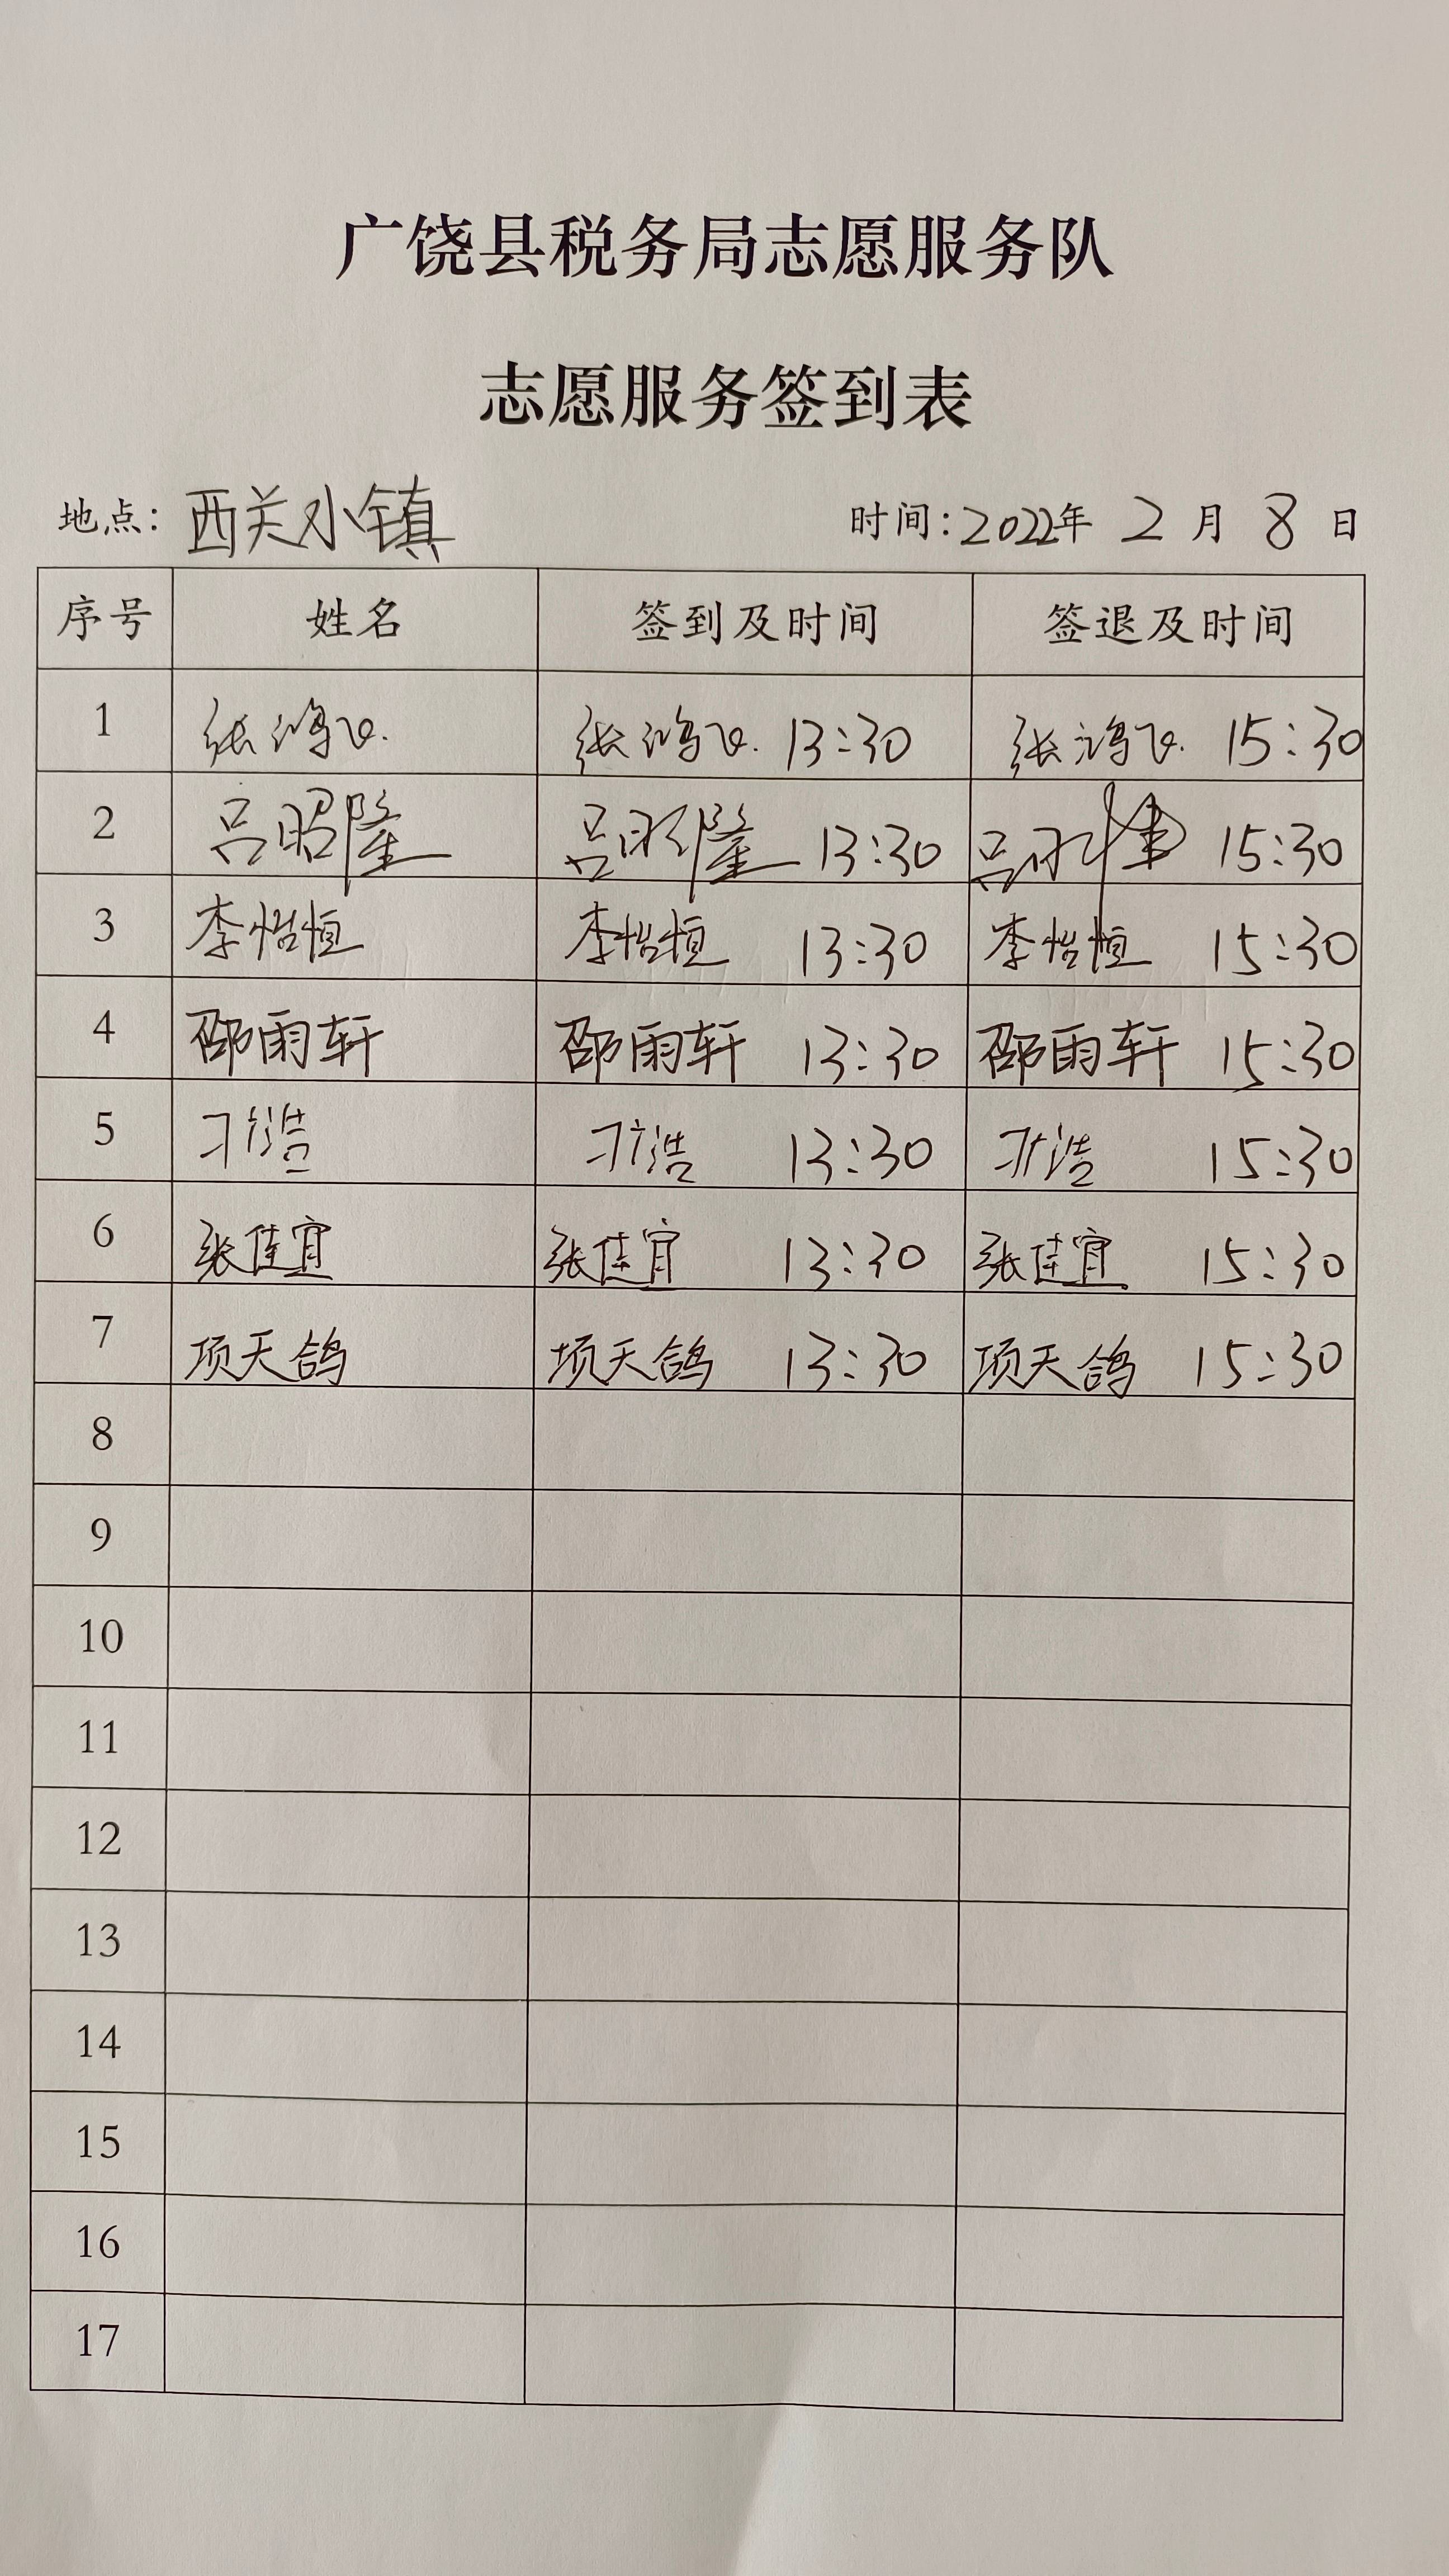 广饶县税务局志愿服务队
志愿服务签到表
地点：西关小镇 时间：2022年 2 月 8 日
序号 姓名 签到及时间 签退及时间
1 张鸿飞 张鸿飞 13:30 张鸿飞 15:30
2 吕昭隆 吕昭隆 13:30 吕昭隆 15:30
3 李怡恒 李怡恒 13:30 李怡恒 15:30
4 邵雨轩 邵雨轩 13:30 邵雨轩 15:30
5 浩 浩 13:30 浩 15:30
6 张佳宜 张佳宜 13:30 张佳宜 15:30
7 项天鸽 项天鸽 13:30 项天鸽 15:30
8
9
10
11
12
13
14
15
16
17